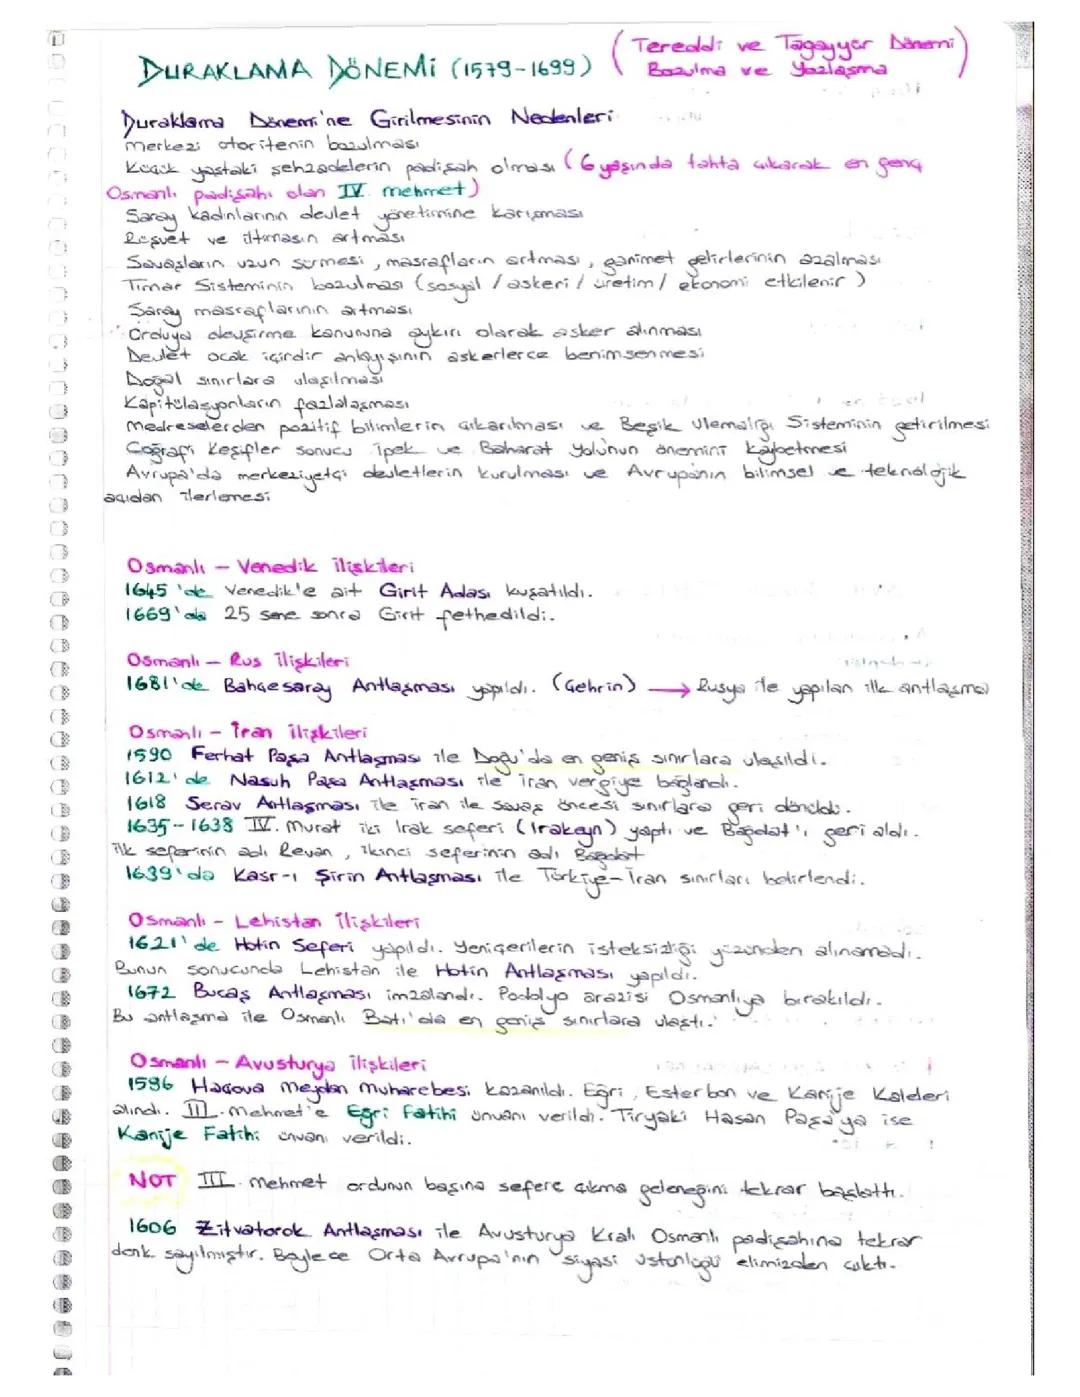 DURAKLAMA DÖNEMİ (1579-1699) (Tereddi ve Tagayyür Dönemi)
Bozulma ve Yozlaşma
Duraklama Dönemi'ne Girilmesinin Nedenleri
Merkezi otoritenin bozulması
Küçük yaştaki şehzadelerin padişah olması (6 yaşında tahta çıkarak en genç
Osmanlı padişahı olan IV. mehmet)
Saray kadınlarının devlet yönetimine karışması
Rüşvet ve iltimasın artması
Savaşların uzun sürmesi, masrafların artması, ganimet gelirlerinin azalması
Tımar Sisteminin bozulması (sosyal / askeri / üretim / ekonomi etkilenir)
Saray masraflarının artması
Orduya devşirme kanununa aykırı olarak asker alınması
Devlet ocak içindir anlayışının askerlerce benimsenmesi
Doğal sınırlara ulaşılması
Kapitülasyonların fazlalaşması
Medreselerden pozitif bilimlerin çıkarılması ve Beşik Ulemalığı Sisteminin getirilmesi
Coğrafi Keşifler sonucu İpek ve Baharat Yolu'nun önemini kaybetmesi
Avrupa'da merkeziyetçi devletlerin kurulması ve Avrupanın bilimsel ve teknolojik
açıdan ilerlemesi
Osmanlı - Venedik ilişkileri
1645'de Venedik'e ait Girit Adası kuşatıldı.
1669'da 25 sene sonra Girit fethedildi.
Osmanlı - Rus ilişkileri
1681'de Bahçesaray Antlaşması yapıldı. (Çehrin) → Rusya ile yapılan ilk antlaşma
Osmanlı - İran ilişkileri
1590 Ferhat Paşa Antlaşması ile Doğu'da en geniş sınırlara ulaşıldı.
1612'de Nasuh Paşa Antlaşması ile İran vergiye bağlandı.
1618 Serav Antlaşması ile İran ile savaş öncesi sınırlara geri dönüldü.
1635-1638 IV. Murat iki Irak seferi (Irakeyn) yaptı ve Bağdat'ı geri aldı.
ilk seferinin adı Revan, ikinci seferinin adı Bağdat
1639'da Kasr-ı Şirin Antlaşması ile Türkiye-İran sınırları belirlendi.
Osmanlı - Lehistan İlişkileri
1621'de Hotin Seferi yapıldı. Yeniçerilerin isteksizliği yüzünden alınamadı.
Bunun sonucunda Lehistan ile Hotin Antlaşması yapıldı.
1672 Bucaş Antlaşması imzalandı. Podolya arazisi Osmanlıya bırakıldı.
Bu antlaşma ile Osmanlı Batı'da en geniş sınırlara ulaştı.
Osmanlı - Avusturya ilişkileri
1596 Haçova Meydan Muharebesi kazanıldı. Eğri, Esterbon ve Kanije Kaleleri
alındı. III. Mehmet'e Eğri Fatihi ünvanı verildi. Tiryaki Hasan Paşa'ya ise
Kanije Fatihi ünvanı verildi.
NOT III. mehmet ordunun başına sefere çıkma geleneğini tekrar başlattı.
1606 Zitvatorok Antlaşması ile Avusturya Kralı Osmanlı padişahına tekrar
denk sayılmıştır. Böylece Orta Avrupa'nın siyasi üstünlüğü elimizden çıktı.